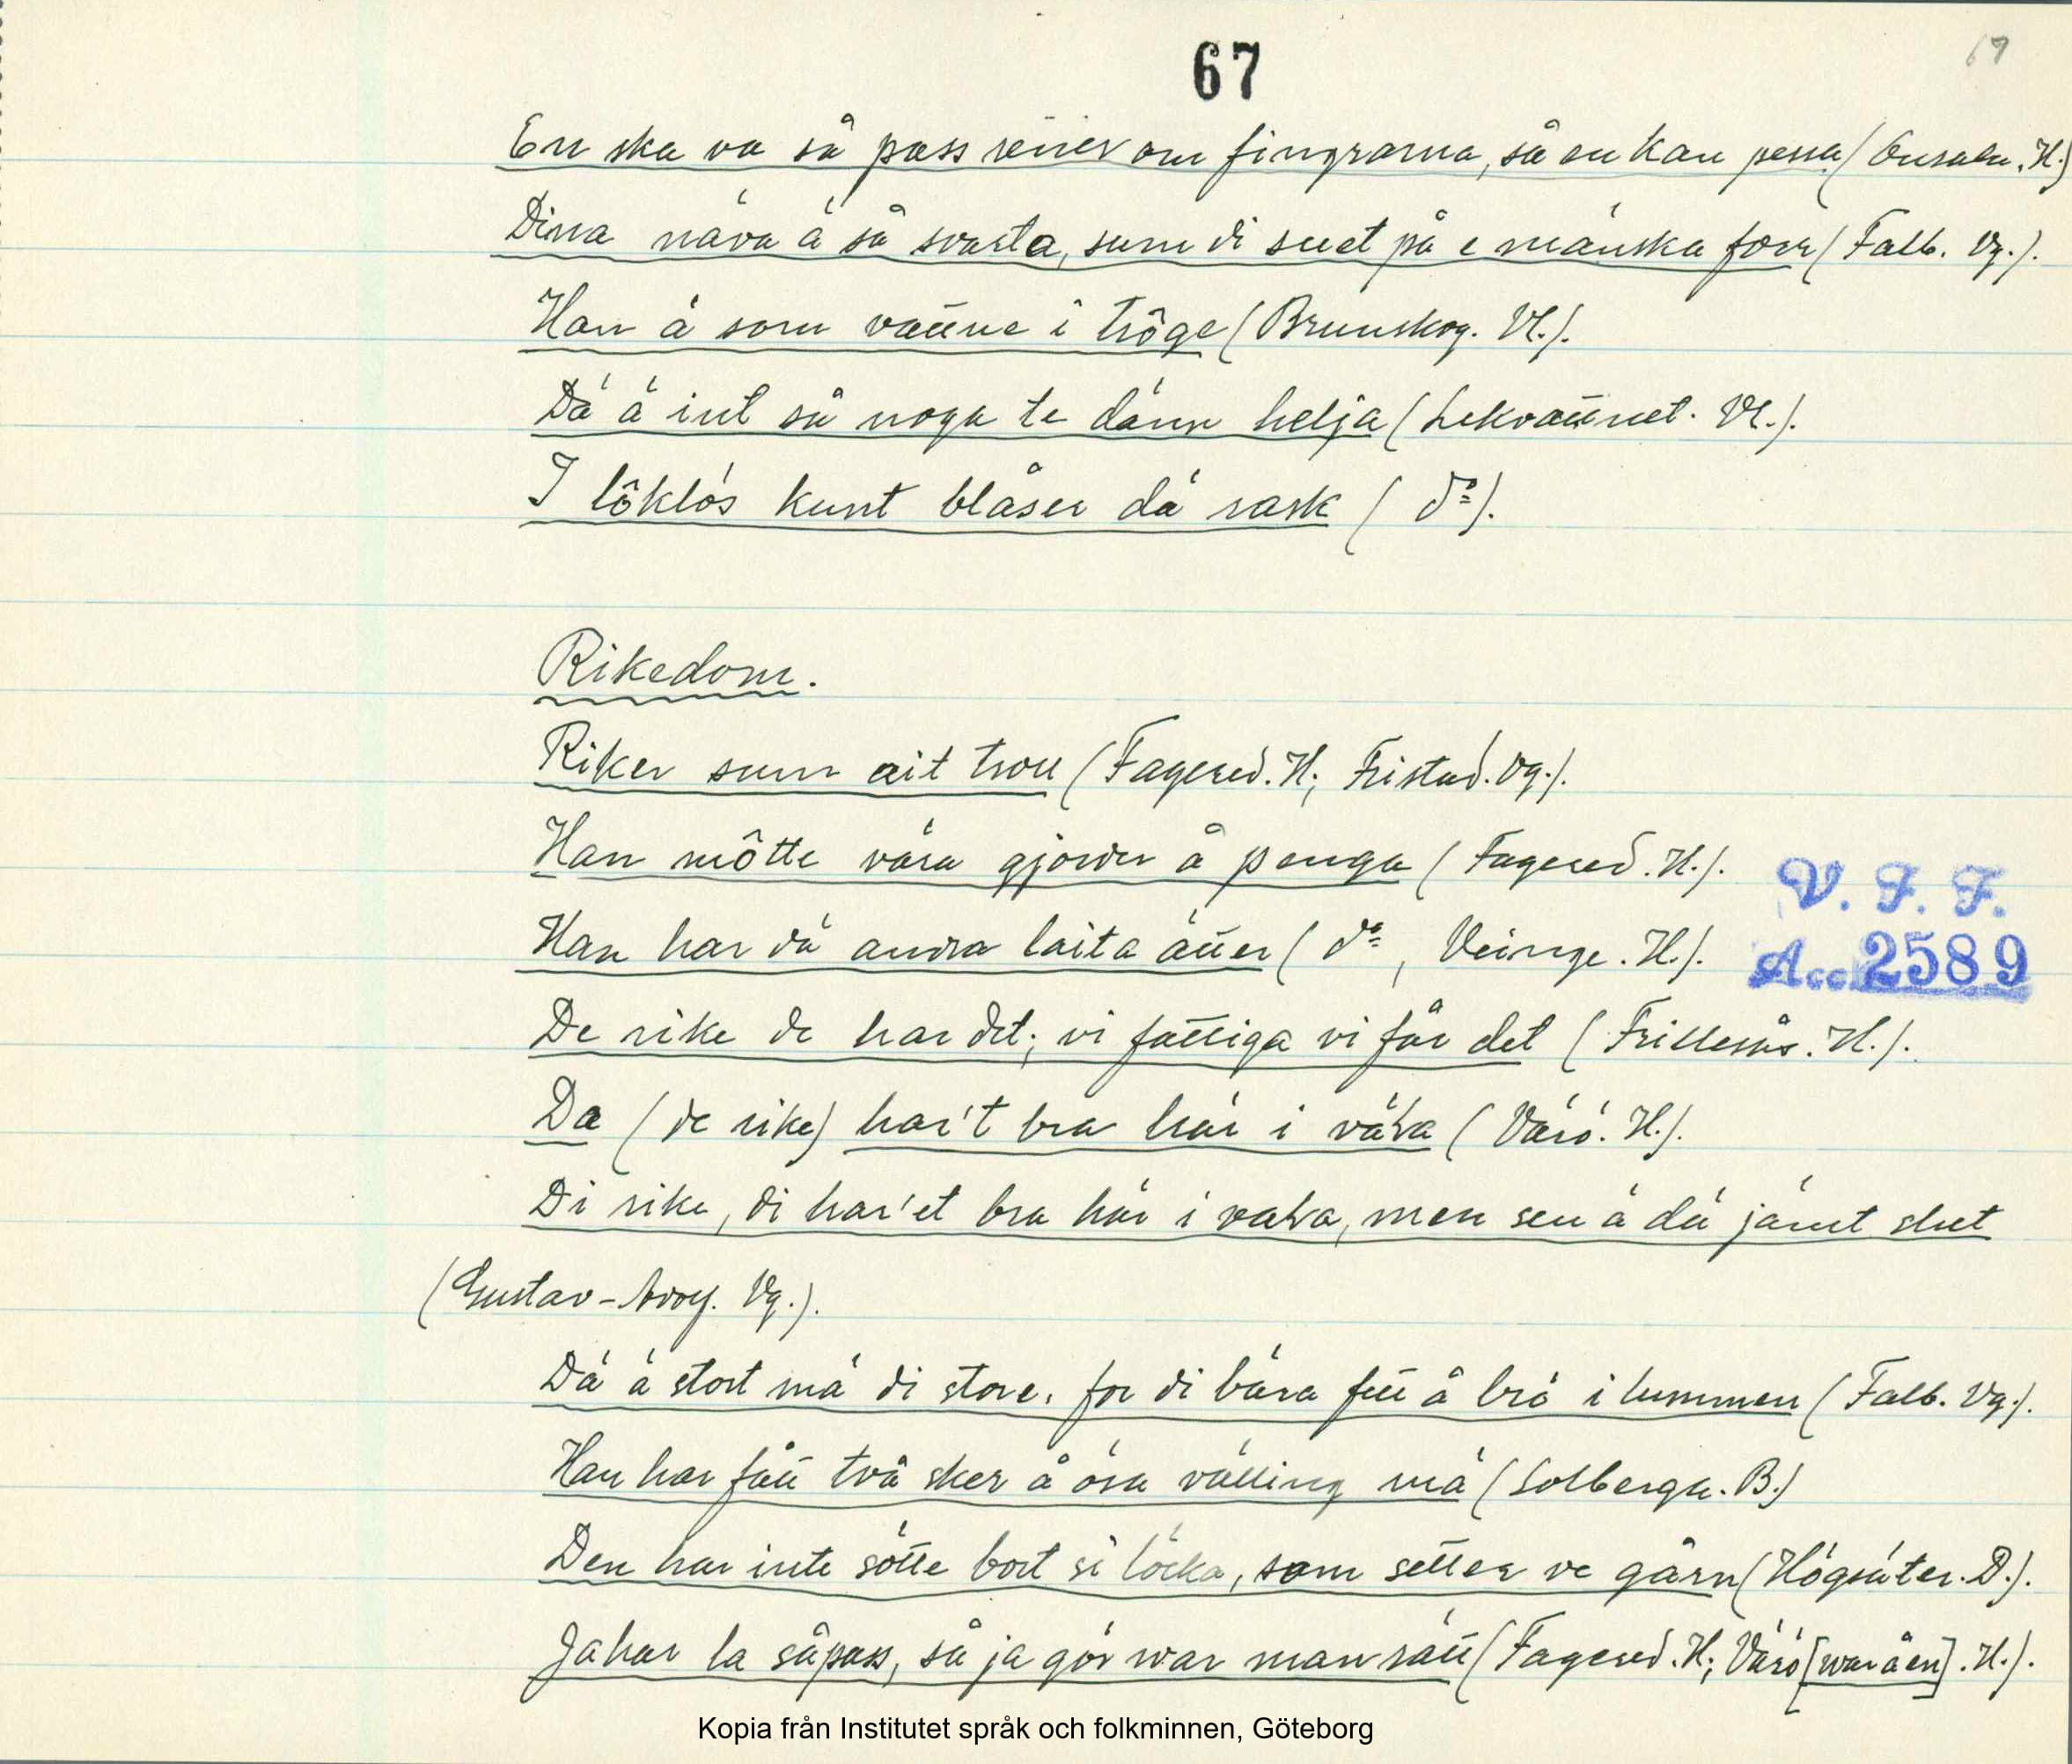 67
67
En ska va så pass reiner om fingrarna, så en kan pessa (Onsala. H.)
Dina näva ä så svarta, sum di suet på e mänska förr (Falb. Vg.).
Han ä som vaṫṫne i trôge (Brunskog. Vl.).
Dä ä int så noga te dänn helja (Lekvattnet. Vl.).
I lôklös kunt blåser dä rask ( do).
Rikedom.
Riker sum ait troll (Fagered. H; Fristad. Vg.).
Han môtte våra gjorder å penga (Fagered. H.).
Han har dä andra laita ätter ( do, Veinge. H.).
V. F. F.
Acc. 2589
De rike de har det; vi fattiga vi får det (Frillesås. H.).
Da (de rike) har't bra här i väla (Värö. H.).
Di rike, di har'et bra här i vala, men sen ä dä jämt slut
(Gustav-Adolf. Vg.).
Dä ä stort mä di store, for di bära fett å brö i lummen (Falb. Vg.).
Han har fått två sker å ösa välling mä (Solberga. B.)
Den har inte sötte bort si löcka, som setter ve gårn (Högsäter. D.).
Ja har la såpass, så ja gör war man rätt (Fagered. H; Värö [war å en]. H.).
Kopia från Institutet språk och folkminnen, Göteborg